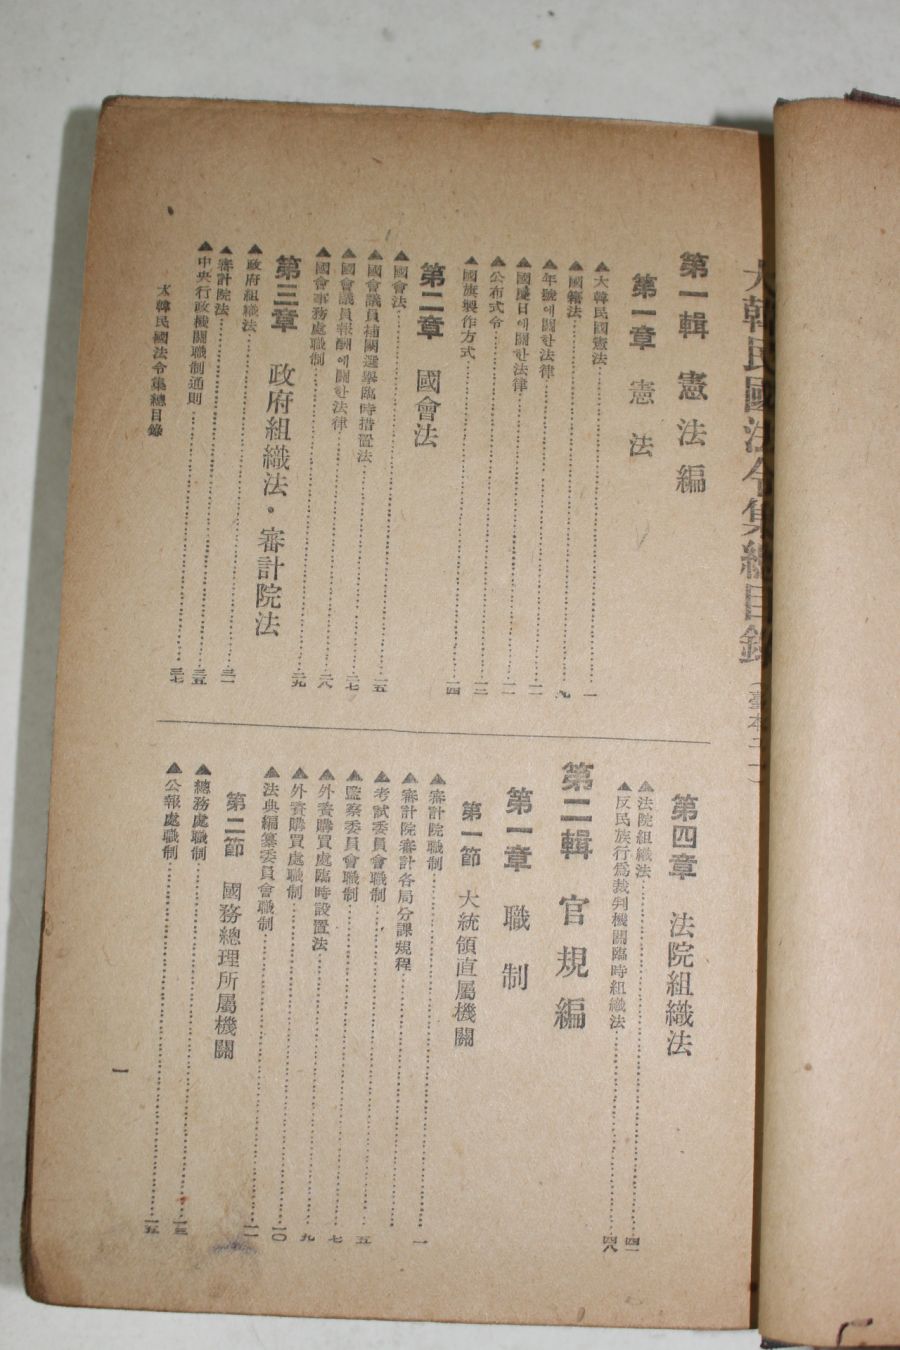 大韓民國法令集總目錄
第一輯 憲法編
第一章 憲法
▲大韓民國憲法……一
▲國籍法……九
▲年號에關한法律……一一
▲國慶日에關한法律……一一
▲公布式令……一二
▲國旗製作方式……一四
第二章 國會法
▲國會法……一五
▲國會議員補闕選擧臨時措置法……二七
▲國會議員報酬에關한法律……二八
▲國會事務處職制……二九
第三章 政府組織法・審計院法
▲政府組織法……三一
▲審計院法……三五
▲中央行政機關職制通則……三七
大韓民國法令集總目錄
第四章 法院組織法
▲法院組織法……四一
▲反民族行爲裁判機關臨時組織法……四八
第二輯 官規編
第一章 職制
第一節 大統領直屬機關
▲審計院職制……一
▲審計院審計各局分課規程……
▲考試委員會職制……五
▲監察委員會職制……七
▲外資購買處臨時設置法……九
▲外資購買處職制……一〇
▲法典編纂委員會職制……一一
第二節 國務總理所屬機關
▲總務處職制……一三
▲公報處職制……一五
一